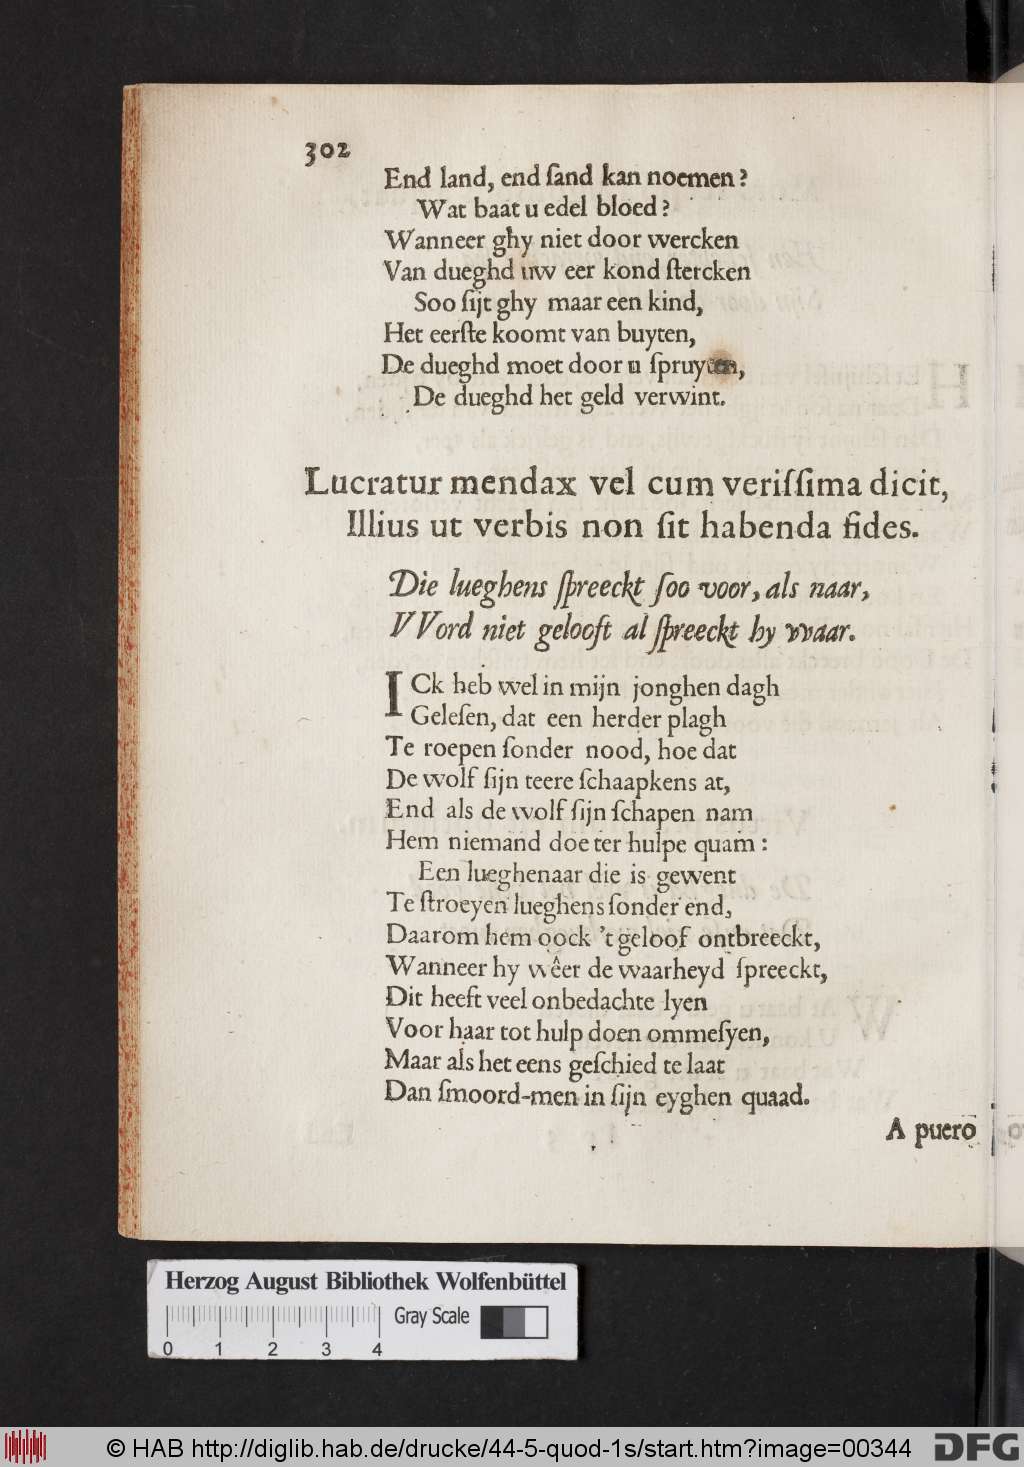 302
End land, end ſand kan noemen?
Wat baat u edel bloed?
Wanneer ghy niet door wercken
Van dueghd uw eer kond ſtercken
Soo ſijt ghy maar een kind,
Het eerſte koomt van buyten,
De dueghd moet door u ſpruyten,
De dueghd het geld verwint.
Lucratur mendax vel cum veriſſima dicit,
Illius ut verbis non ſit habenda fides.
Die lueghens ſpreeckt ſoo voor, als naar,
VVord niet gelooft al ſpreeckt hy vvaar.
ICk heb wel in mijn jonghen dagh
Geleſen, dat een herder plagh
Te roepen ſonder nood, hoe dat
De wolf ſijn teere ſchaapkens at,
End als de wolf ſijn ſchapen nam
Hem niemand doe ter hulpe quam:
Een lueghenaar die is gewent
Te ſtroeyen lueghens ſonder end,
Daarom hem oock 't geloof ontbreeckt,
Wanneer hy wêer de waarheyd ſpreeckt,
Dit heeft veel onbedachte lyen
Voor haar tot hulp doen ommeſyen,
Maar als het eens geſchied te laat
Dan ſmoord-men in ſijn eyghen quaad.
A puero
Herzog August Bibliothek Wolfenbüttel
Gray Scale
0 1 2 3 4
© HAB http://diglib.hab.de/drucke/44-5-quod-1s/start.htm?image=00344
DFG